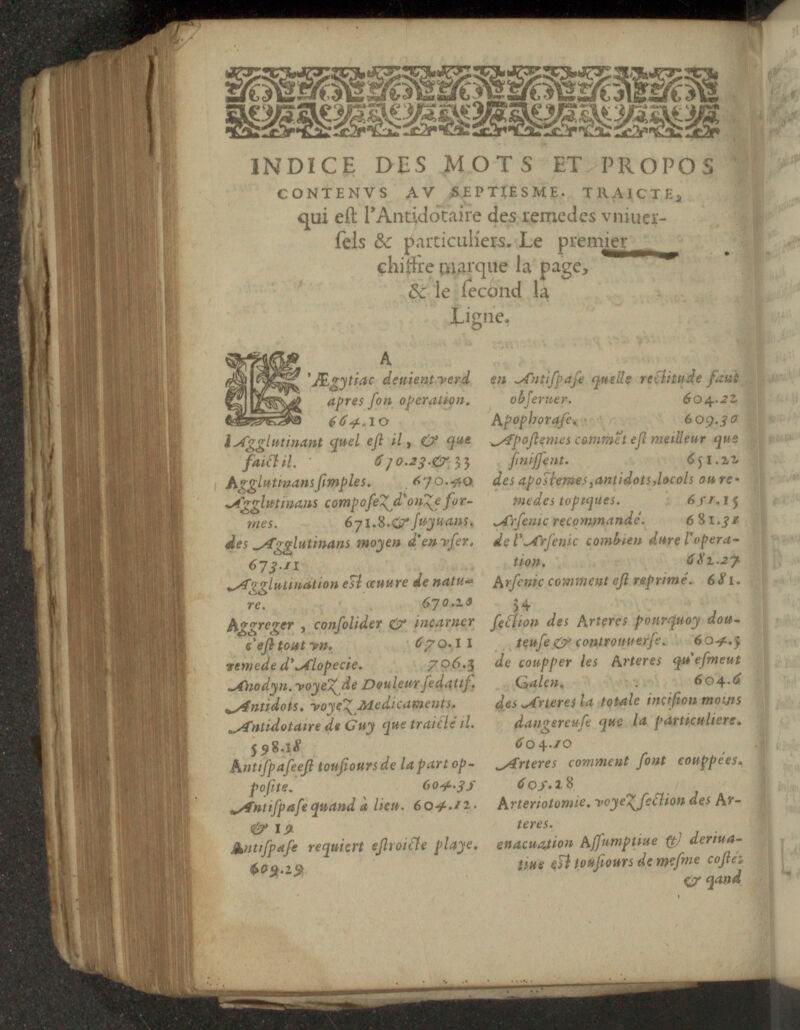 INDICE DES MOTS ET PROPOS
CONTENVS AV SEPTIESME. TRAICTE,
qui est l'Antidotaire des remedes vniuer-
sels & particuliers. Le premier
chiffre marque la page,
& le second la
Ligne.
A
L'Ægytiac deuient verd
apres son operation.
664.10
l'Agglutinant quel est il, & que
faict il. 670.23.& 33
Agglutinans simples. 670.40
Agglutinans composez d'onze for-
mes. 671.8.& suyuans.
des Agglutinans moyen d'en vser.
673.11
Agglutination est œuure de natu-
re. 670.20
Aggreger, consolider & incarner
c'est tout vn. 670.11
remede d'Alopecie. 706.3
Anodyn. voyez de Douleur sedatif.
Antidots. voyez Medicaments.
Antidotaire de Guy que traicté il.
598.18
Antispaseest tousiours de la part op-
posite. 604.35
Antispase quand à lieu. 604.12.
& 19
Antispase requiert estroicte playe.
609.29
en Antispase quelle rectitude faut
obseruer. 604.22
Apophorase. 609.30
Apostemes commet est meilleur que
finissent. 651.22
des apostemes, antidots, locols ou re-
medes topiques. 651.15
Arsenic recommandé. 681.32
de l'Arsenic combien dure l'opera-
tion. 682.27
Arsenic comment est reprimé. 681.
34
section des Arteres pourquoy dou-
teuse & controuuerse. 604.5
de coupper les Arteres qu'esmeut
Galen. 604.6
des Arteres la totale incision moins
dangereuse que la particuliere.
604.10
Arteres comment sont couppées.
605.28
Arteriotomie. voyez section des Ar-
teres.
enacuation Assumptiue & deriua-
tiue est tousiours de mesme costé:
& qand